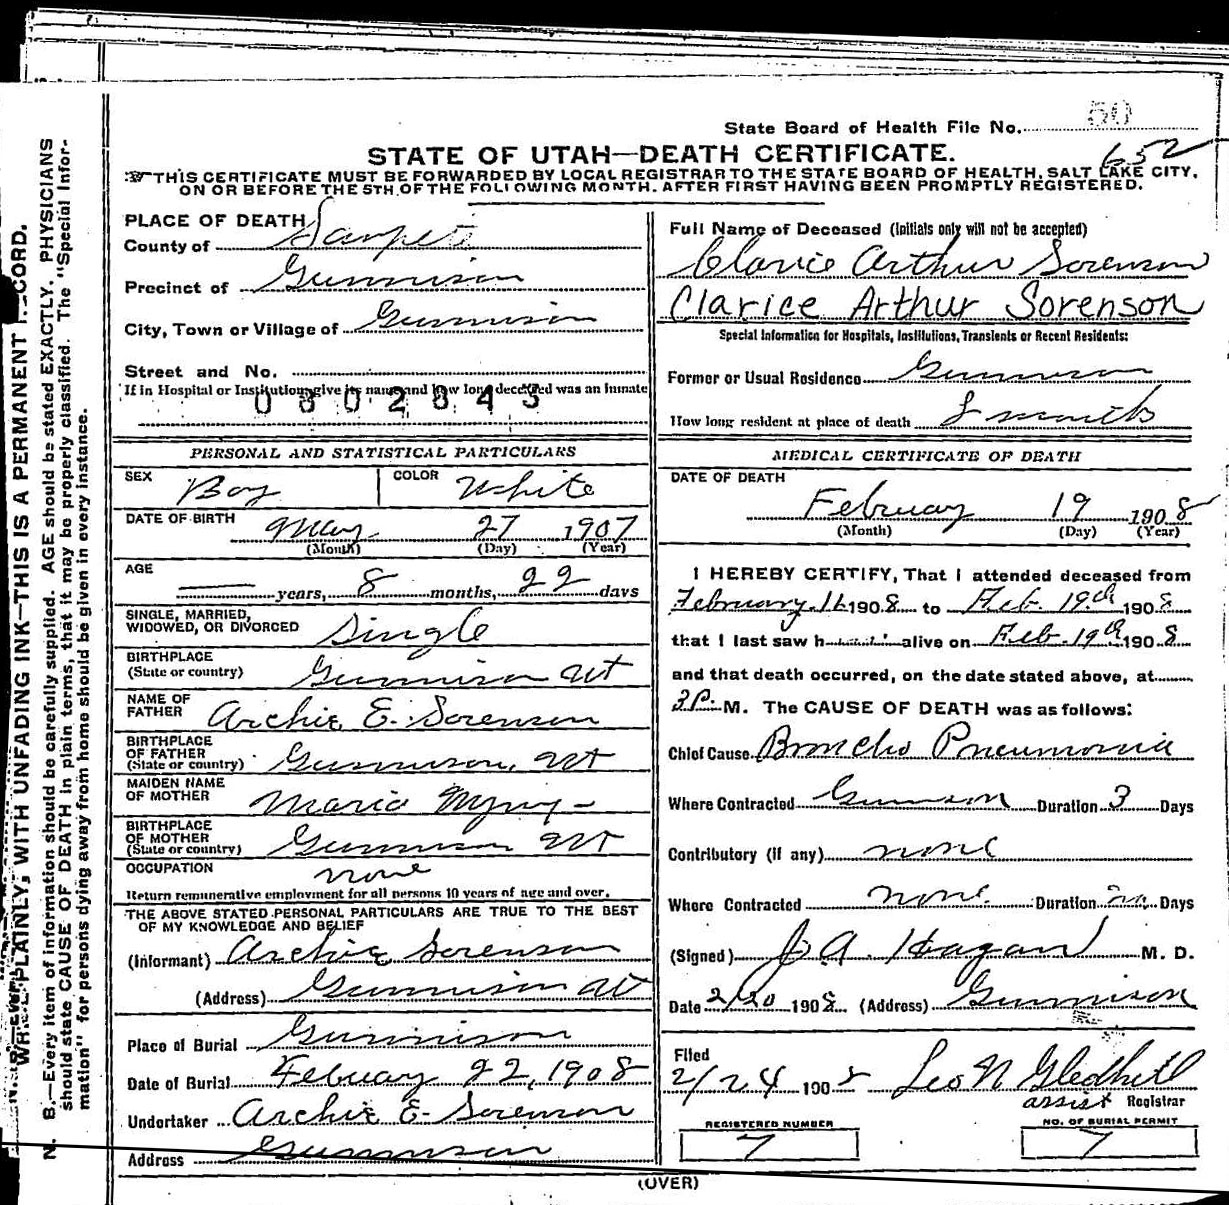 State Board of Health File No. 50
652
STATE OF UTAH—DEATH CERTIFICATE.
THIS CERTIFICATE MUST BE FORWARDED BY LOCAL REGISTRAR TO THE STATE BOARD OF HEALTH, SALT LAKE CITY,
ON OR BEFORE THE 5TH OF THE FOLLOWING MONTH. AFTER FIRST HAVING BEEN PROMPTLY REGISTERED.
PLACE OF DEATH
County of Sanpete
Precinct of Gunnison
City, Town or Village of Gunnison
Street and No.
If in Hospital or Institution, give its name and how long deceased was an inmate
0802843
PERSONAL AND STATISTICAL PARTICULARS
SEX Boy COLOR White
DATE OF BIRTH May 27 1907
(Month) (Day) (Year)
AGE — years, 8 months, 22 days
SINGLE, MARRIED,
WIDOWED, OR DIVORCED Single
BIRTHPLACE
(State or country) Gunnison Ut
NAME OF
FATHER Archie E. Sorenson
BIRTHPLACE
OF FATHER
(State or country) Gunnison, Ut
MAIDEN NAME
OF MOTHER Maria
BIRTHPLACE
OF MOTHER
(State or country) Gunnison Ut
OCCUPATION none
Return remunerative employment for all persons 10 years of age and over.
THE ABOVE STATED PERSONAL PARTICULARS ARE TRUE TO THE BEST
OF MY KNOWLEDGE AND BELIEF
(Informant) Archie Sorenson
(Address) Gunnison Ut
Place of Burial Gunnison
Date of Burial Febuary 22, 1908
Undertaker Archie E. Sorenson
Address Gunnison
Full Name of Deceased (Initials only will not be accepted)
Clarice Arthur Sorenson
Clarice Arthur Sorenson
Special Information for Hospitals, Institutions, Transients or Recent Residents:
Former or Usual Residence Gunnison
How long resident at place of death 8 months
MEDICAL CERTIFICATE OF DEATH
DATE OF DEATH
February 19 1908
(Month) (Day) (Year)
I HEREBY CERTIFY, That I attended deceased from
February 16 1908 to Feb. 19th 1908
that I last saw h alive on Feb. 19th 1908
and that death occurred, on the date stated above, at
3 P. M. The CAUSE OF DEATH was as follows:
Chief Cause Broncho Pneumonia
Where Contracted Gunnison Duration 3 Days
Contributory (if any) none
Where Contracted none. Duration no Days
(Signed) J. A. Hagan M. D.
Date 2/20 1908 (Address) Gunnison
Filed
2/24 1908 Leo N Gledhill
assist Registrar
REGISTERED NUMBER
7
NO. OF BURIAL PERMIT
7
(OVER)
WRITE PLAINLY, WITH UNFADING INK—THIS IS A PERMANENT RECORD.
N. B.—Every item of information should be carefully supplied. AGE should be stated EXACTLY. PHYSICIANS
should state CAUSE OF DEATH in plain terms, that it may be properly classified. The "Special Infor-
mation" for persons dying away from home should be given in every instance.